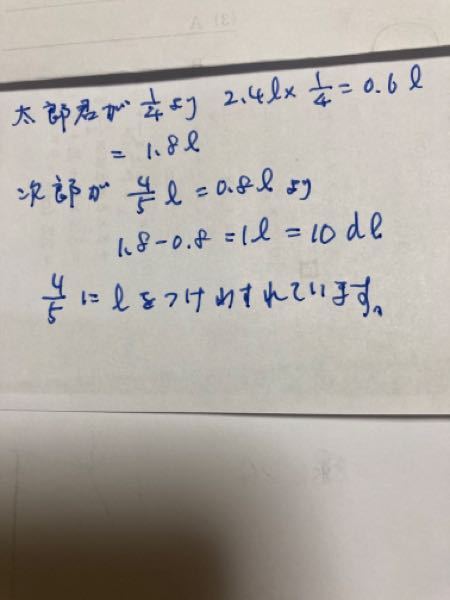 太郎君が 1/4 より 2.4l×1/4=0.6l
=1.8l
次郎が 4/5 l=0.8l より
1.8-0.8=1l=10dl
4/5にlをつけわすれています。